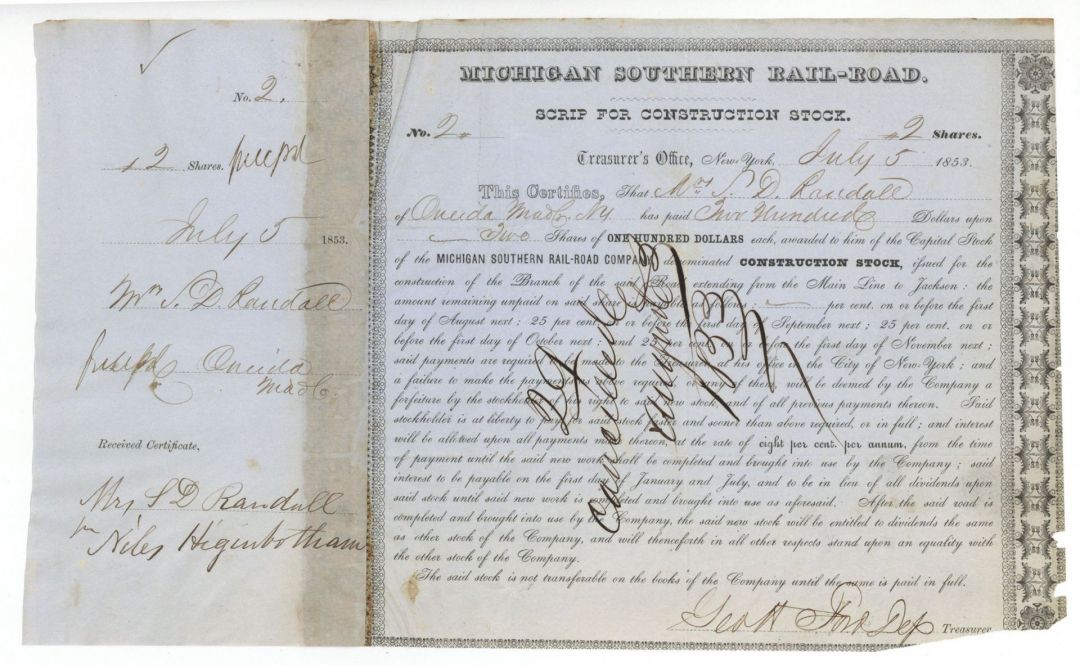 No. 2.
2 Shares.
July 5 1853.
Mrs S. D. Randall
Oneida
Mad Co.
Received Certificate,
Mrs S D Randall
Niles Higinbotham
MICHIGAN SOUTHERN RAIL-ROAD.
SCRIP FOR CONSTRUCTION STOCK.
No. 2. 2 Shares.
Treasurer's Office, New-York, July 5 1853.
This Certifies, That Mrs S. D. Randall
of Oneida Mad Co. NY has paid Two Hundred Dollars upon
Two Shares of ONE HUNDRED DOLLARS each, awarded to him of the Capital Stock
of the MICHIGAN SOUTHERN RAIL-ROAD COMPANY, denominated CONSTRUCTION STOCK, issued for the
construction of the Branch of the said Road extending from the Main Line to Jackson: the
amount remaining unpaid on said shares is payable as follows: per cent. on or before the first
day of August next; 25 per cent. on or before the first day of September next; 25 per cent. on or
before the first day of October next; and 25 per cent. on or before the first day of November next;
said payments are required to be made to the Treasurer at his office in the City of New-York; and
a failure to make the payments as above required, or any of them, will be deemed by the Company a
forfeiture by the stockholder of his right to said new stock, and of all previous payments thereon. Said
stockholder is at liberty to pay for said stock faster and sooner than above required, or in full; and interest
will be allowed upon all payments made thereon, at the rate of eight per cent. per annum, from the time
of payment until the said new work shall be completed and brought into use by the Company; said
interest to be payable on the first days of January and July, and to be in lieu of all dividends upon
said stock until said new work is completed and brought into use as aforesaid. After the said road is
completed and brought into use by the Company, the said new stock will be entitled to dividends the same
as other stock of the Company, and will thenceforth in all other respects stand upon an equality with
the other stock of the Company.
The said stock is not transferable on the books of the Company until the same is paid in full.
Treasurer